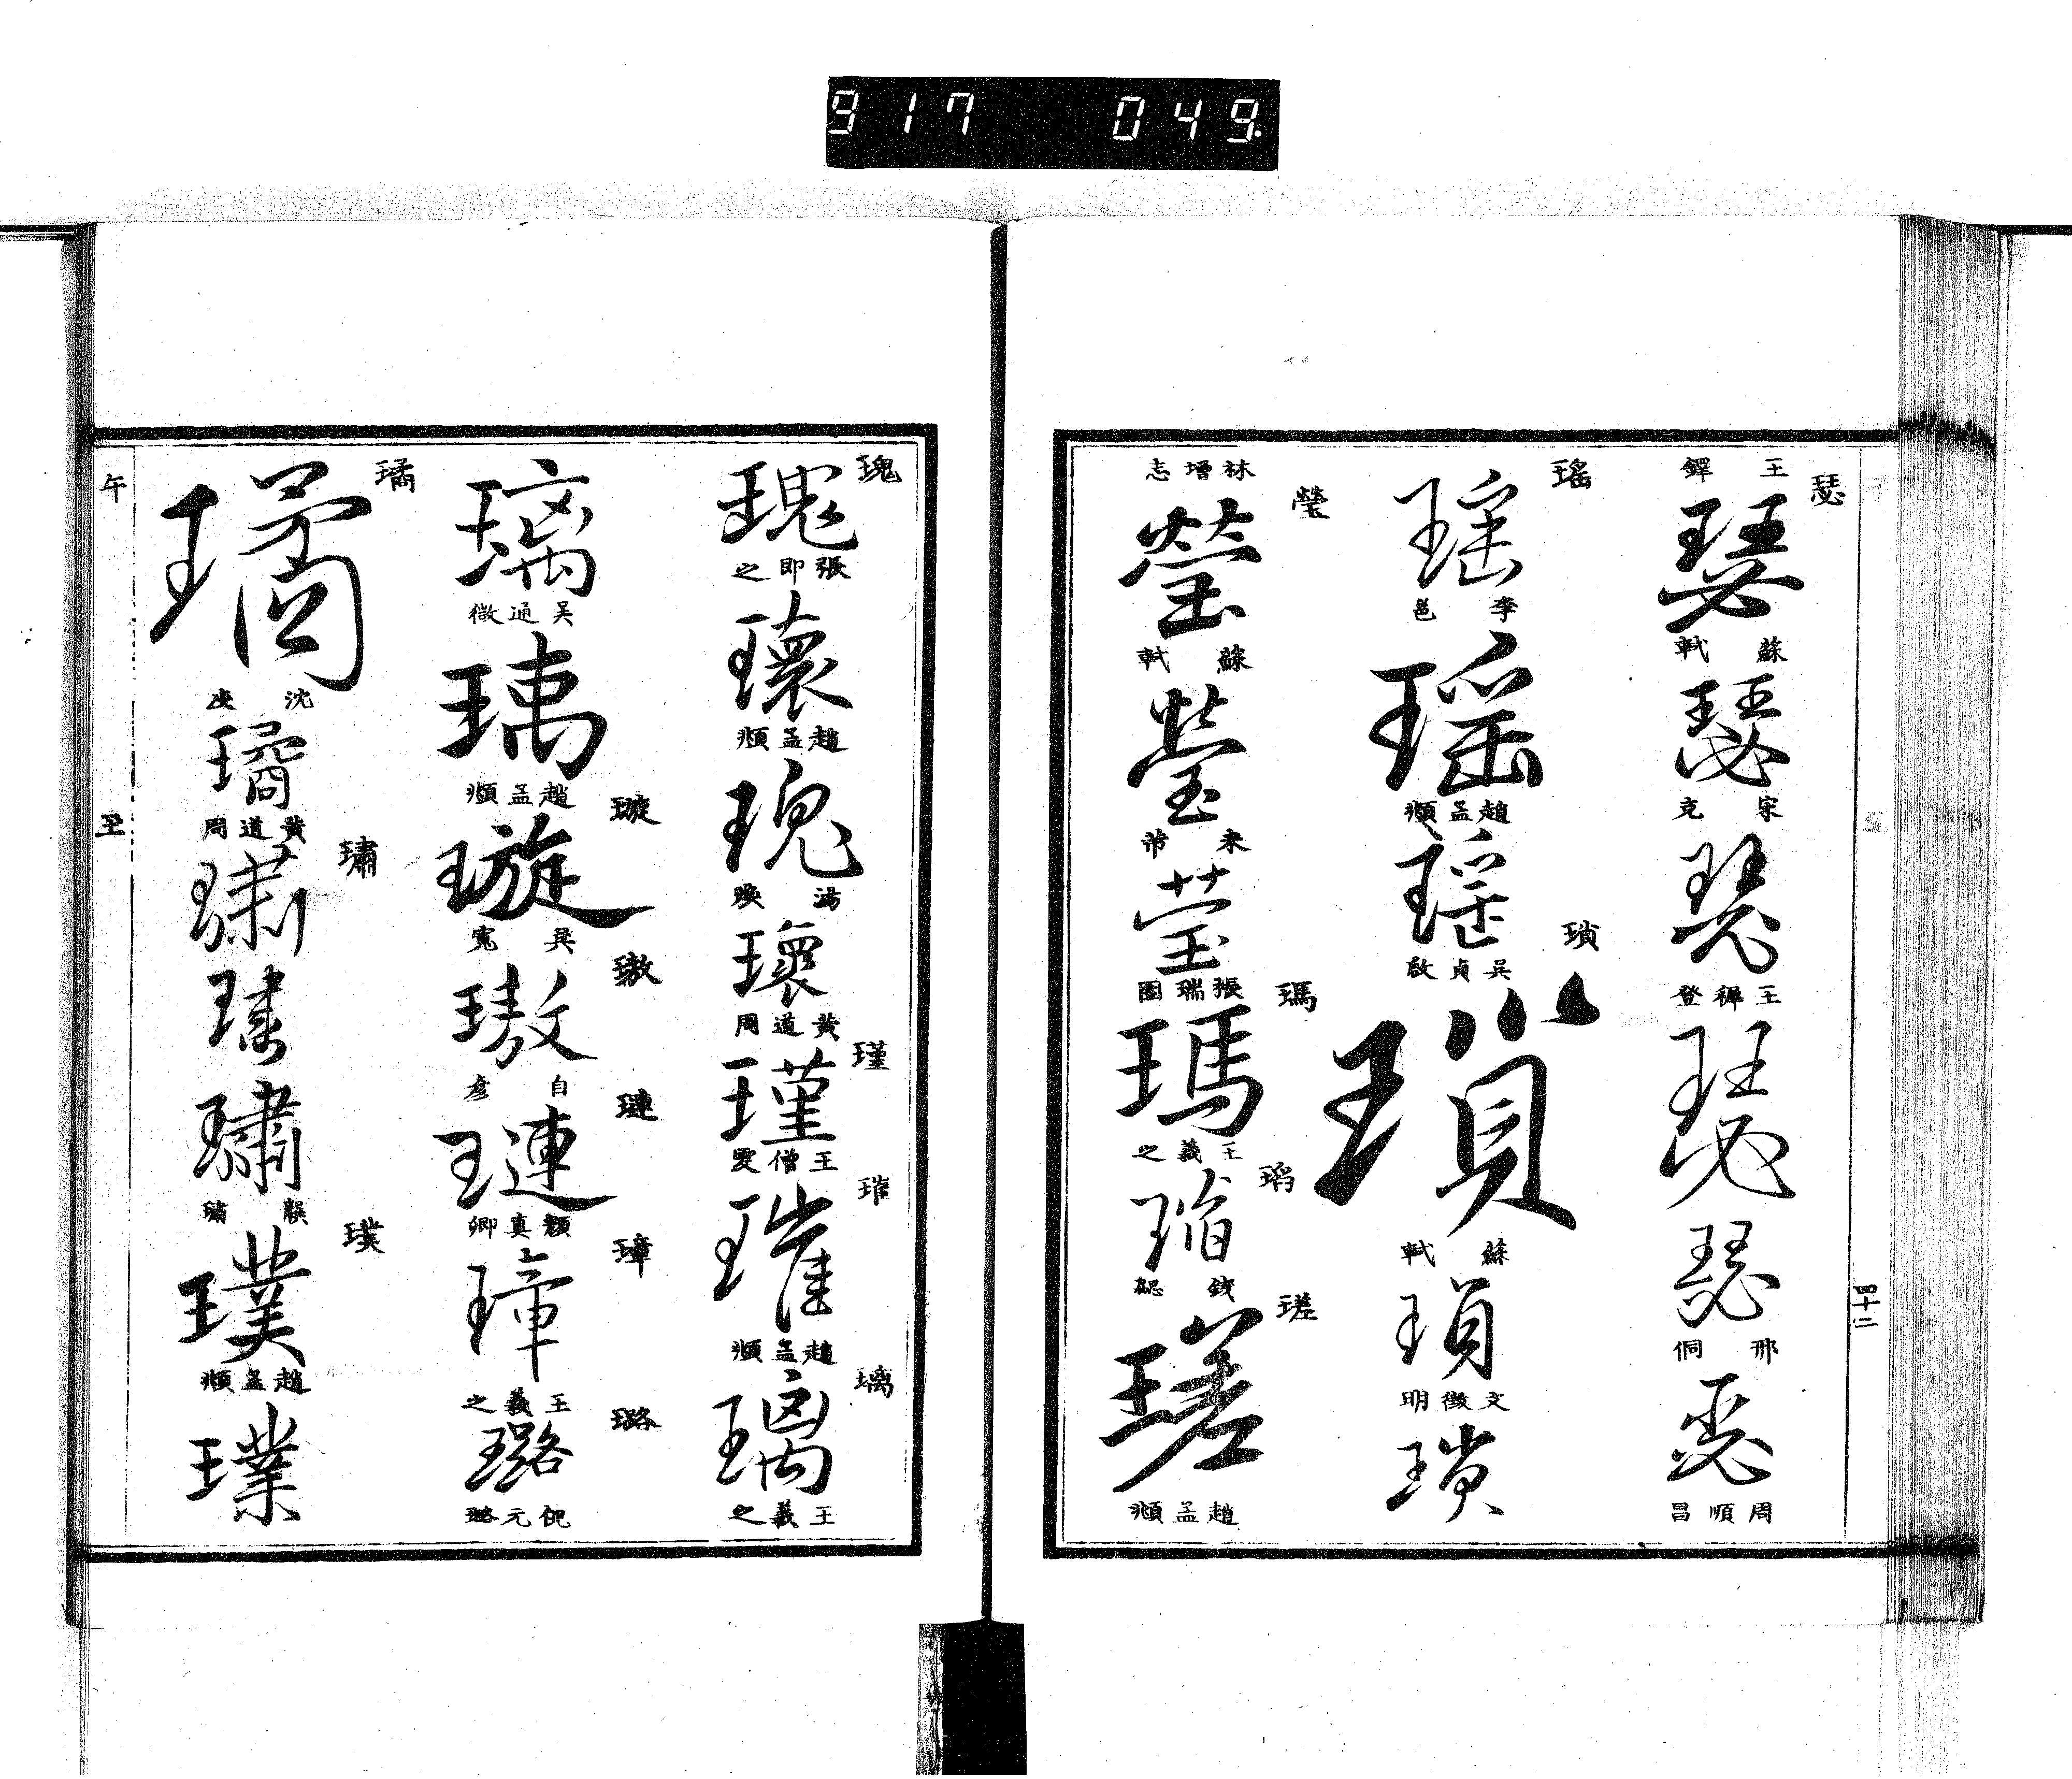 917 049.
瑟
王鐸
瑟
蘇軾
瑟
宋克
瑟
王穉登
瑟
瑟
邢侗
瑟
周順昌
四十二
瑤
瑤
李邕
瑤
趙孟頫
瑤
吴貞啟
瑣
瑣
蘇軾
瑣
文徵明
瑣
林增志
瑩
瑩
蘇軾
瑩
米芾
瑩
張瑞圖
瑪
瑪
王羲之
瑫
瑫
錢
瑳
瑳
趙孟頫
瑰
瑰
張即之
瓌
趙孟頫
瑰
湯煥
瓌
黃道周
瑾
瑾
王僧雯
璀
璀
趙孟頫
璃
璃
王羲之
璃
吴通微
璃
趙孟頫
璇
璇
吴寬
璈
璈
自彥
璉
璉
顏真卿
璋
璋
王羲之
璐
璐
倪元璐
璚
璚
沈度
璚
黃道周
璛
璛
璛
璛
璞
璞
趙孟頫
璞
午
玉